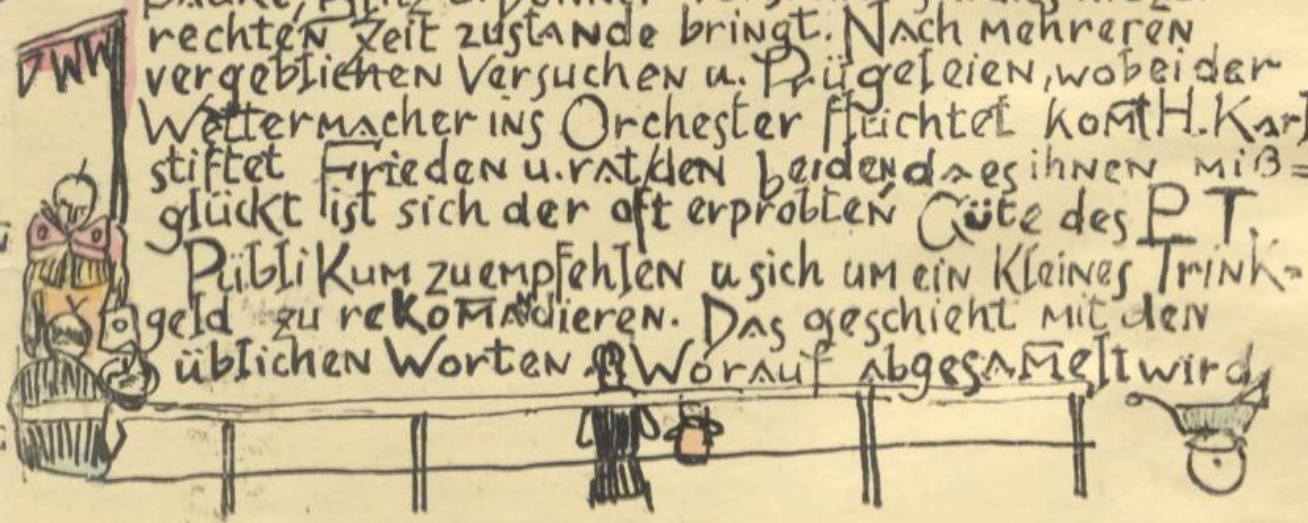 rechten Zeit zustande bringt. Nach mehreren
vergeblichen Versuchen u. Prügeleien, wobei der
Wettermacher ins Orchester flüchtet kom̄t H. Karl
stiftet Frieden u. rat den beiden da es ihnen miß=
glückt ist sich der oft erprobten Güte des P.T.
Publikum zu empfehlen u sich um ein kleines Trink=
geld zu rekom̄andieren. Das geschieht mit den
üblichen Worten. Worauf abgesam̄elt wird